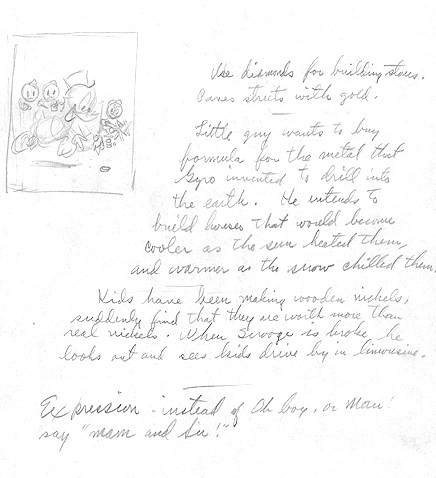 Use diamonds for building stones.
Paves streets with gold.
Little guy wants to buy
formula for the metal that
Gyro invented to drill into
the earth. He intends to
build houses that would become
cooler as the sun heated them,
and warmer as the snow chilled them.
Kids have been making wooden nickels,
suddenly find that they are worth more than
real nickels. When Scrooge is broke, he
looks out and sees kids drive by in limousine.
Expression - instead of Oh boy, or Man!
say "mam and Sir!"